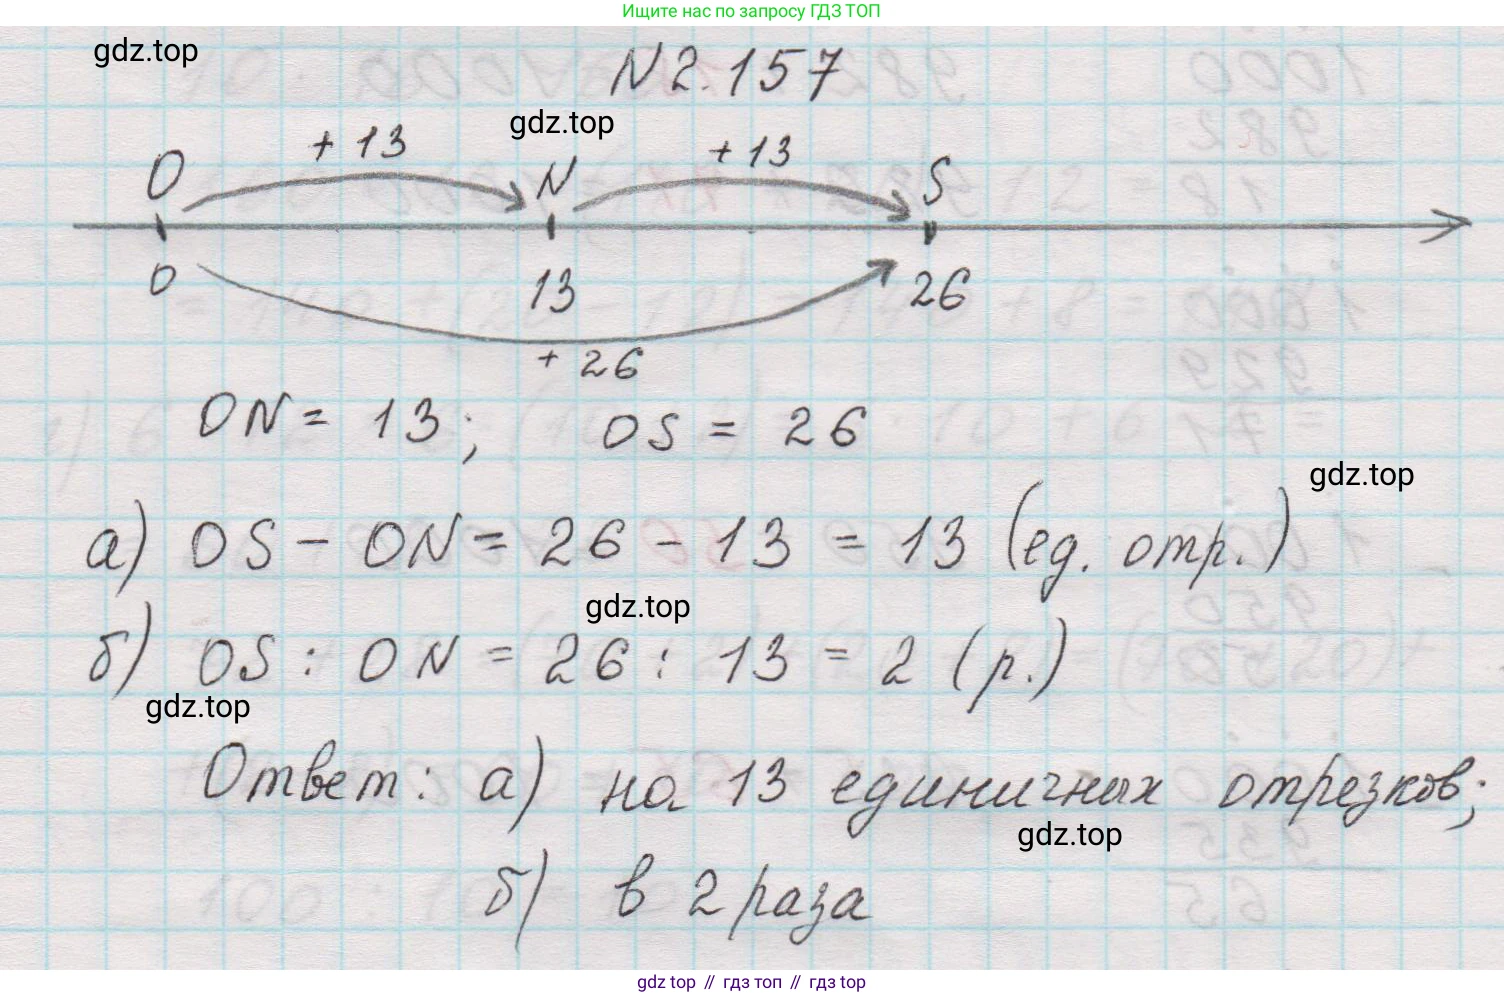 Ищите нас по запросу ГДЗ ТОП
gdz.top
N 2.157
gdz.top
+ 13
+ 13
O N S
0 13 26
+ 26
ON = 13; OS = 26
gdz.top
а) OS - ON = 26 - 13 = 13 (ед. отр.)
gdz.top
б) OS : ON = 26 : 13 = 2 (р.)
gdz.top
Ответ: а) на 13 единичных отрезков;
gdz.top
б) в 2 раза
gdz top // гдз топ // gdz top